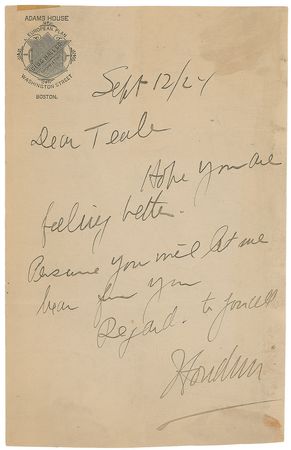 ADAMS HOUSE
EUROPEAN PLAN
WASHINGTON STREET
BOSTON.
Sept 12/24
Dear Teale
Hope you are
feeling better.
Presume you will let me
hear from you
Regards to yourself
Houdini